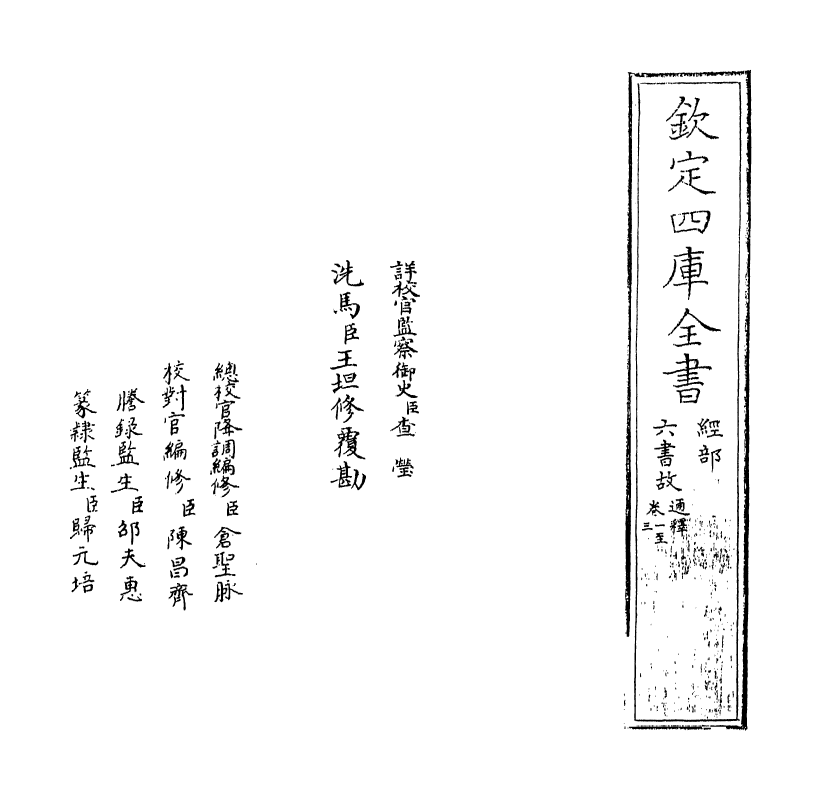 欽定四庫全書
經部
六書故
通釋
卷一至
三
詳校官監察御史臣查瑩
洗馬臣王坦修覆勘
總校官降調編修臣倉聖脉
校對官編修臣陳昌齊
謄錄監生臣邵夫惠
篆隸監生臣歸元培